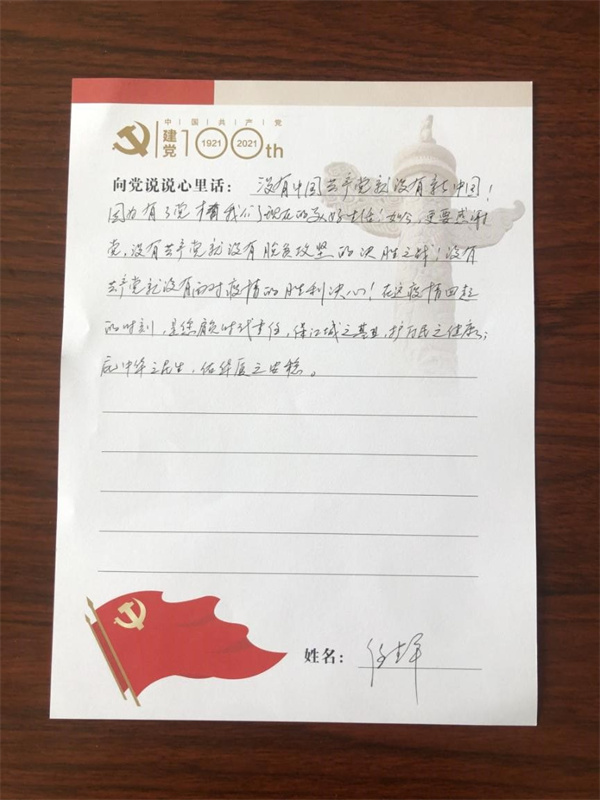 中国共产党
建党
100th
1921
2021
向党说说心里话:没有中国共产党就没有新中国!
因为有了党才有我们现在的美好生活!如今,更要感谢
党,没有共产党就没有脱贫攻坚的决胜之战!没有
共产党就没有面对疫情的胜利决心!在这疫情四起
的时刻,是您肩负时代重任,保江城之基业,护万民之健康;
庇中华之民生,佑华厦之安稳。
姓名: